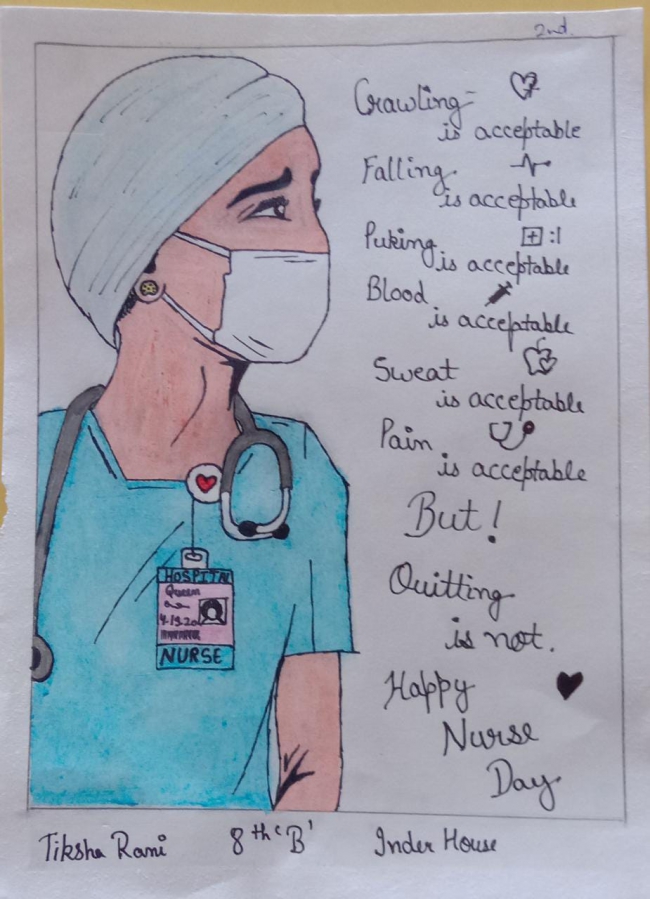 2nd.
Crawling
is acceptable
Falling
is acceptable
Puking
is acceptable
Blood
is acceptable
Sweat
is acceptable
Pain
is acceptable
But!
Quitting
is not.
Happy
Nurse
Day
HOSPITAL
Queen
4.19.20
NURSE
Tiksha Rani 8th 'B' Inder House